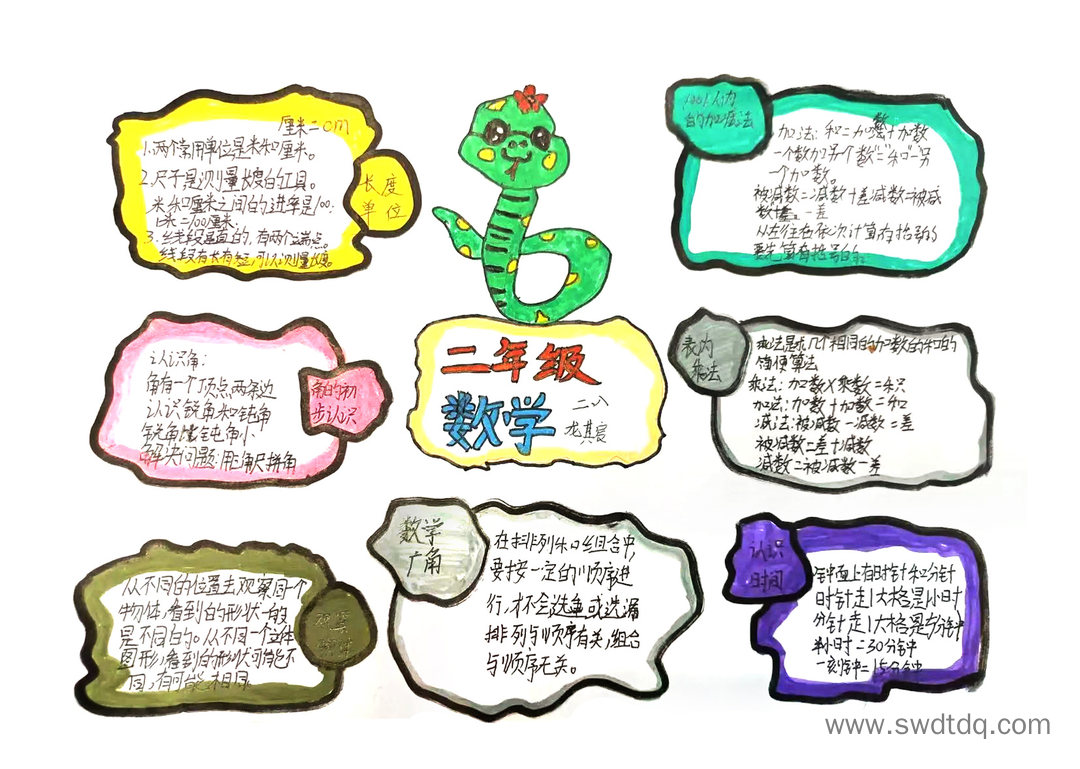 厘米=cm
1.两个常用单位是米和厘米。
2.尺子是测量长度的工具。
米和厘米之间的进率是100:
1米=100厘米.
3.线段是直的,有两个端点。
线段有长有短,可以测量长度。
长度
单位
二年级
数学
二.八
100以内
的加减法
加法:和=加数+加数
一个数加另个数"="和"-另
一个加数。
被减数=减数+差减数=被减
数-差
从左往右依次计算有括号的
要先算有括号的。
认识角:
角有一个顶点两条边
认识锐角和钝角
锐角比钝角小
解决问题:用三角尺拼角
角的初
步认识
表内
乘法
乘法是求几个相同的加数的和的
简便算法
乘法:加数×乘数=积
加法:加数+加数=和
减法:被减数-减数=差
被减数=差+减数
减数=被减数-差
从不同的位置去观察同一个
物体,看到的形状一般
是不同的。从不同一个立体
图形,看到的形状可能不
同,有可能相同.
观察
数学
广角
在排列和组合中,
要按一定的顺序进
行,才不会选重或选漏
排列与顺序有关,组合
与顺序无关。
认识
时间
钟面上有时针和分针
时针走1大格是1小时
分针走1大格是5分钟
半小时=30分钟
一刻钟=15分钟
www.swdtdq.com